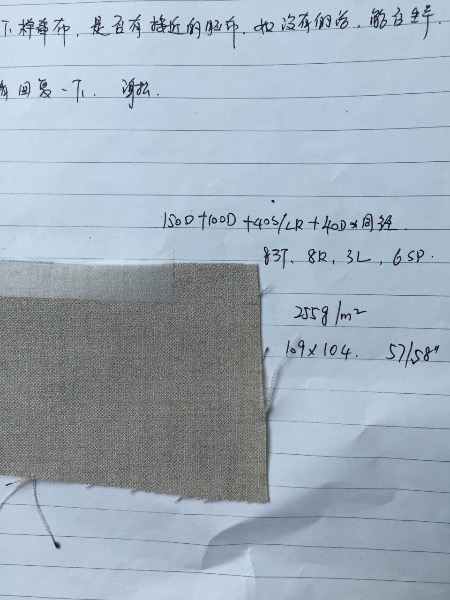 下样品布，是否有接近的胚布，如没有的话，能否生产
回复一下. 谢谢.
150D+100D+40S/LR+40D×同经
83T、8R，3L，6SP.
255g/m²
109×104. 57/58"